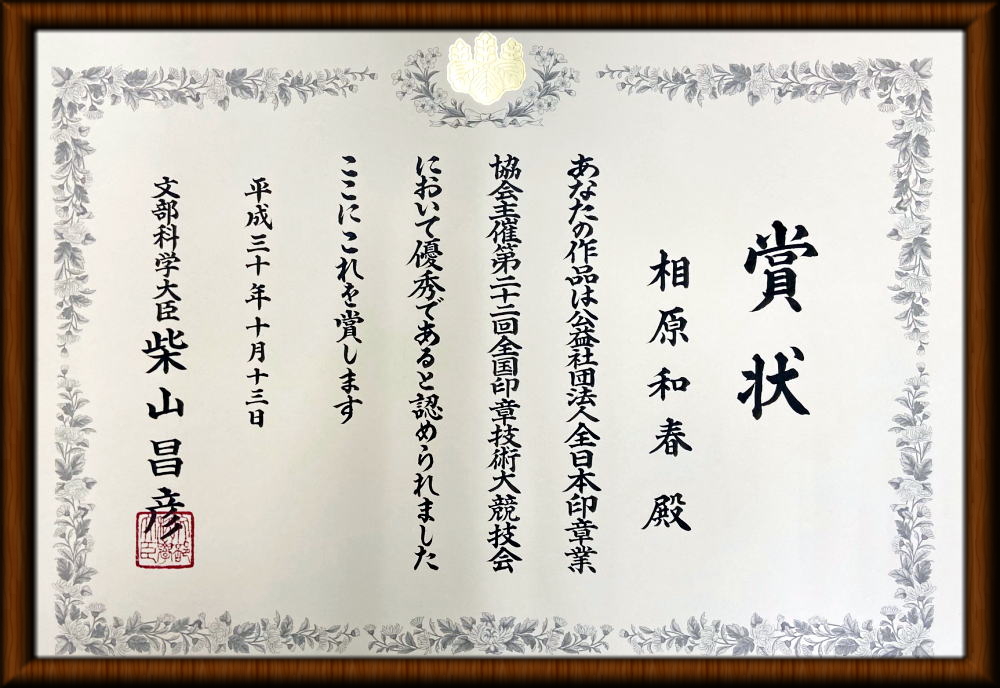 賞状
相原和春 殿
あなたの作品は公益社団法人全日本印章業
協会主催第二十二回全国印章技術大競技会
において優秀であると認められました
ここにこれを賞します
平成三十年十月十三日
文部科学大臣 柴山昌彦